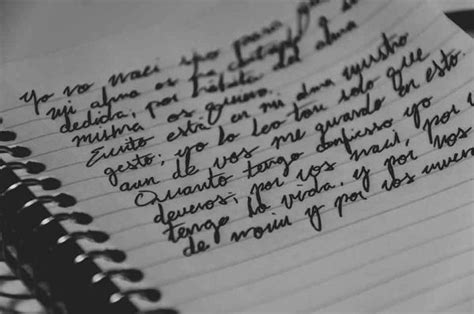 Yo no naci sino para que
mi alma os ha cortado a su
dedida, por hábito del alma
misma os quiero.
Escrito está en mi alma vuestro
gesto; yo lo leo tan solo que
aun de vos me guardo en esto.
Quanto tengo confieso yo
deveros; por vos naci, por
tengo la vida, y por vos
de morir y por vos muero